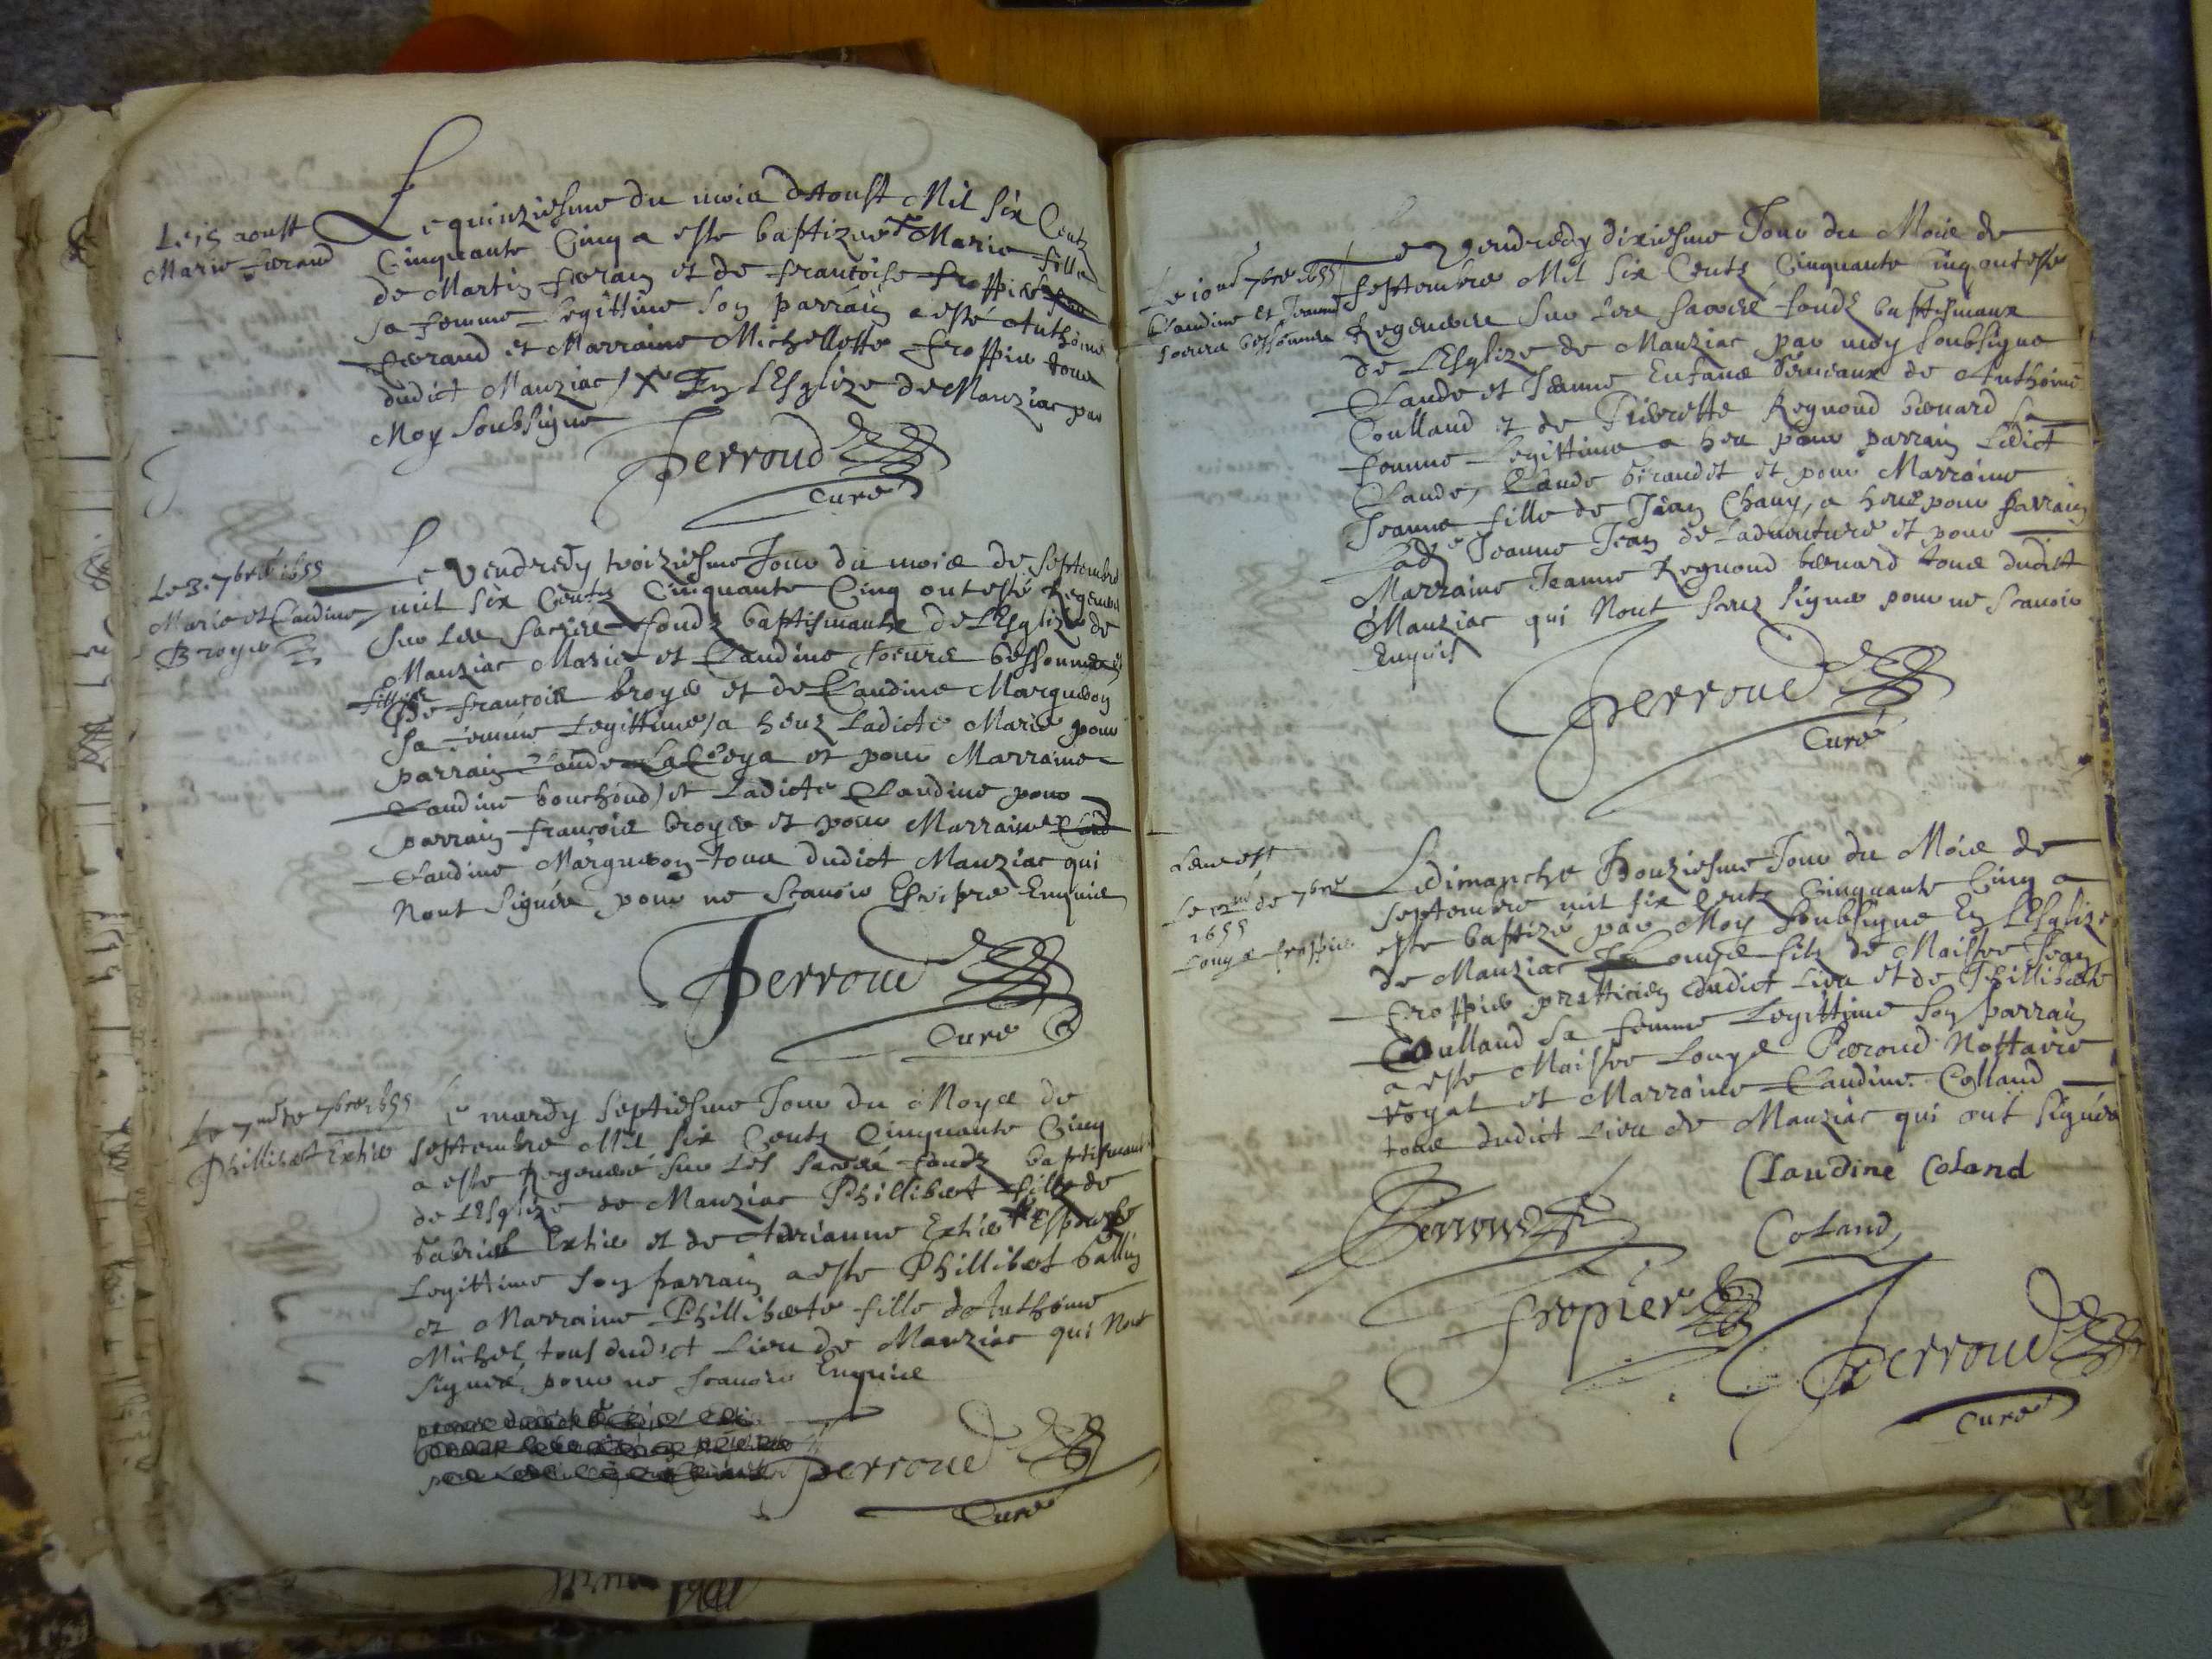 Le 15 aoust
Marie feraud
Le quinziesme du mois d'Aoust Mil Six Centz
Cinquante Cinq a esté baptizée Marie fille
de Martin feraud et de françoise froppier
sa femme Legittime son parrain a esté Anthoine
feraud et Marraine Michellette froppier tous
dudict Manziac / X En L'Esglize de Manziac par
Moy Soubsigne
Perroud
Curé
Le 3e 7bre 1655
Marie et Claudine
Broye
Le Vendredy troiziesme Jour du mois de Septembre
mil six Centz Cinquante Cinq ont esté Regeneré
Sur Les Sacrés fondz baptismaulx de L'Esglize de
Manziac Marie et Claudine soeurs bessonnes
filles de françois broye et de Claudine Margueron
Sa femme Legittime / a heuz Ladicte Marie pour
parrain Claude et pour Marraine
Claudine bouchoud / et Ladicte Claudine pour
parrain françois broye et pour Marraine
Claudine Margueron tous dudict Manziac qui
Nont Signés pour ne Scauoir Escripre Enquis
Perroud
Curé
Le 7me de 7bre 1655
Phillibert Extier
Le mardy Septiesme Jour du Moys de
Septembre Mil Six Centz Cinquante Cinq
a esté Regeneré Sur Les Sacrés fondz baptismaulx
de L'Esglize de Manziac Phillibert filz de
Gabriel Extier et de Adrianne Extier Espouse
Legittime Son parrain a esté Phillibert ballin
et Marraine Philliberte fille d'Anthoine
Michel tous dudict Lieu de Manziac qui Nont
Signés pour ne Scauoir Enquis
Perroud
Curé
Le 10me 7bre 1655
Claudine et Jeanne
soeurs bessonnes
Le Vendredy dixiesme Jour du Mois de
Septembre Mil Six Centz Cinquante Cinq ont esté
Regenerés Sur Les Sacrés fondz baptismaux
de L'Esglize de Manziac par moy Soubsigne
Claude et Jeanne Enfans Gemeaux de Anthoine
Coulland et de Pierrette Regnoud bernard Sa
femme Legittime a heu pour parrain Ledict
Claude, Claude Giraudet et pour Marraine
Jeanne fille de Jean Chany, a heue pour parrain
Ladte Jeanne Jean de Laduenture et pour
Marraine Jeanne Regnoud bernard tous dudict
Manziac qui Nont Signe pour ne Scauoir
Enquis
Perroud
Curé
Le 12me de 7bre
1655
Louys froppier
Le dimanche Douziesme Jour du Mois de
Septembre mil six Centz Cinquante Cinq a
esté baptizé par Moy Soubsigne En L'Esglize
de Manziac Louys filz de Maistre Jean
froppier pratticien dudict Lieu et de Phillibert
Coulland Sa femme Legittime Son parrain
a esté Maistre Louys Perroud Nottaire
Royal et Marraine Claudine Colland
tous dudict Lieu de Manziac qui ont Signés
Claudine Coland
Perroud
Coland
fropier
Perroud
Curé